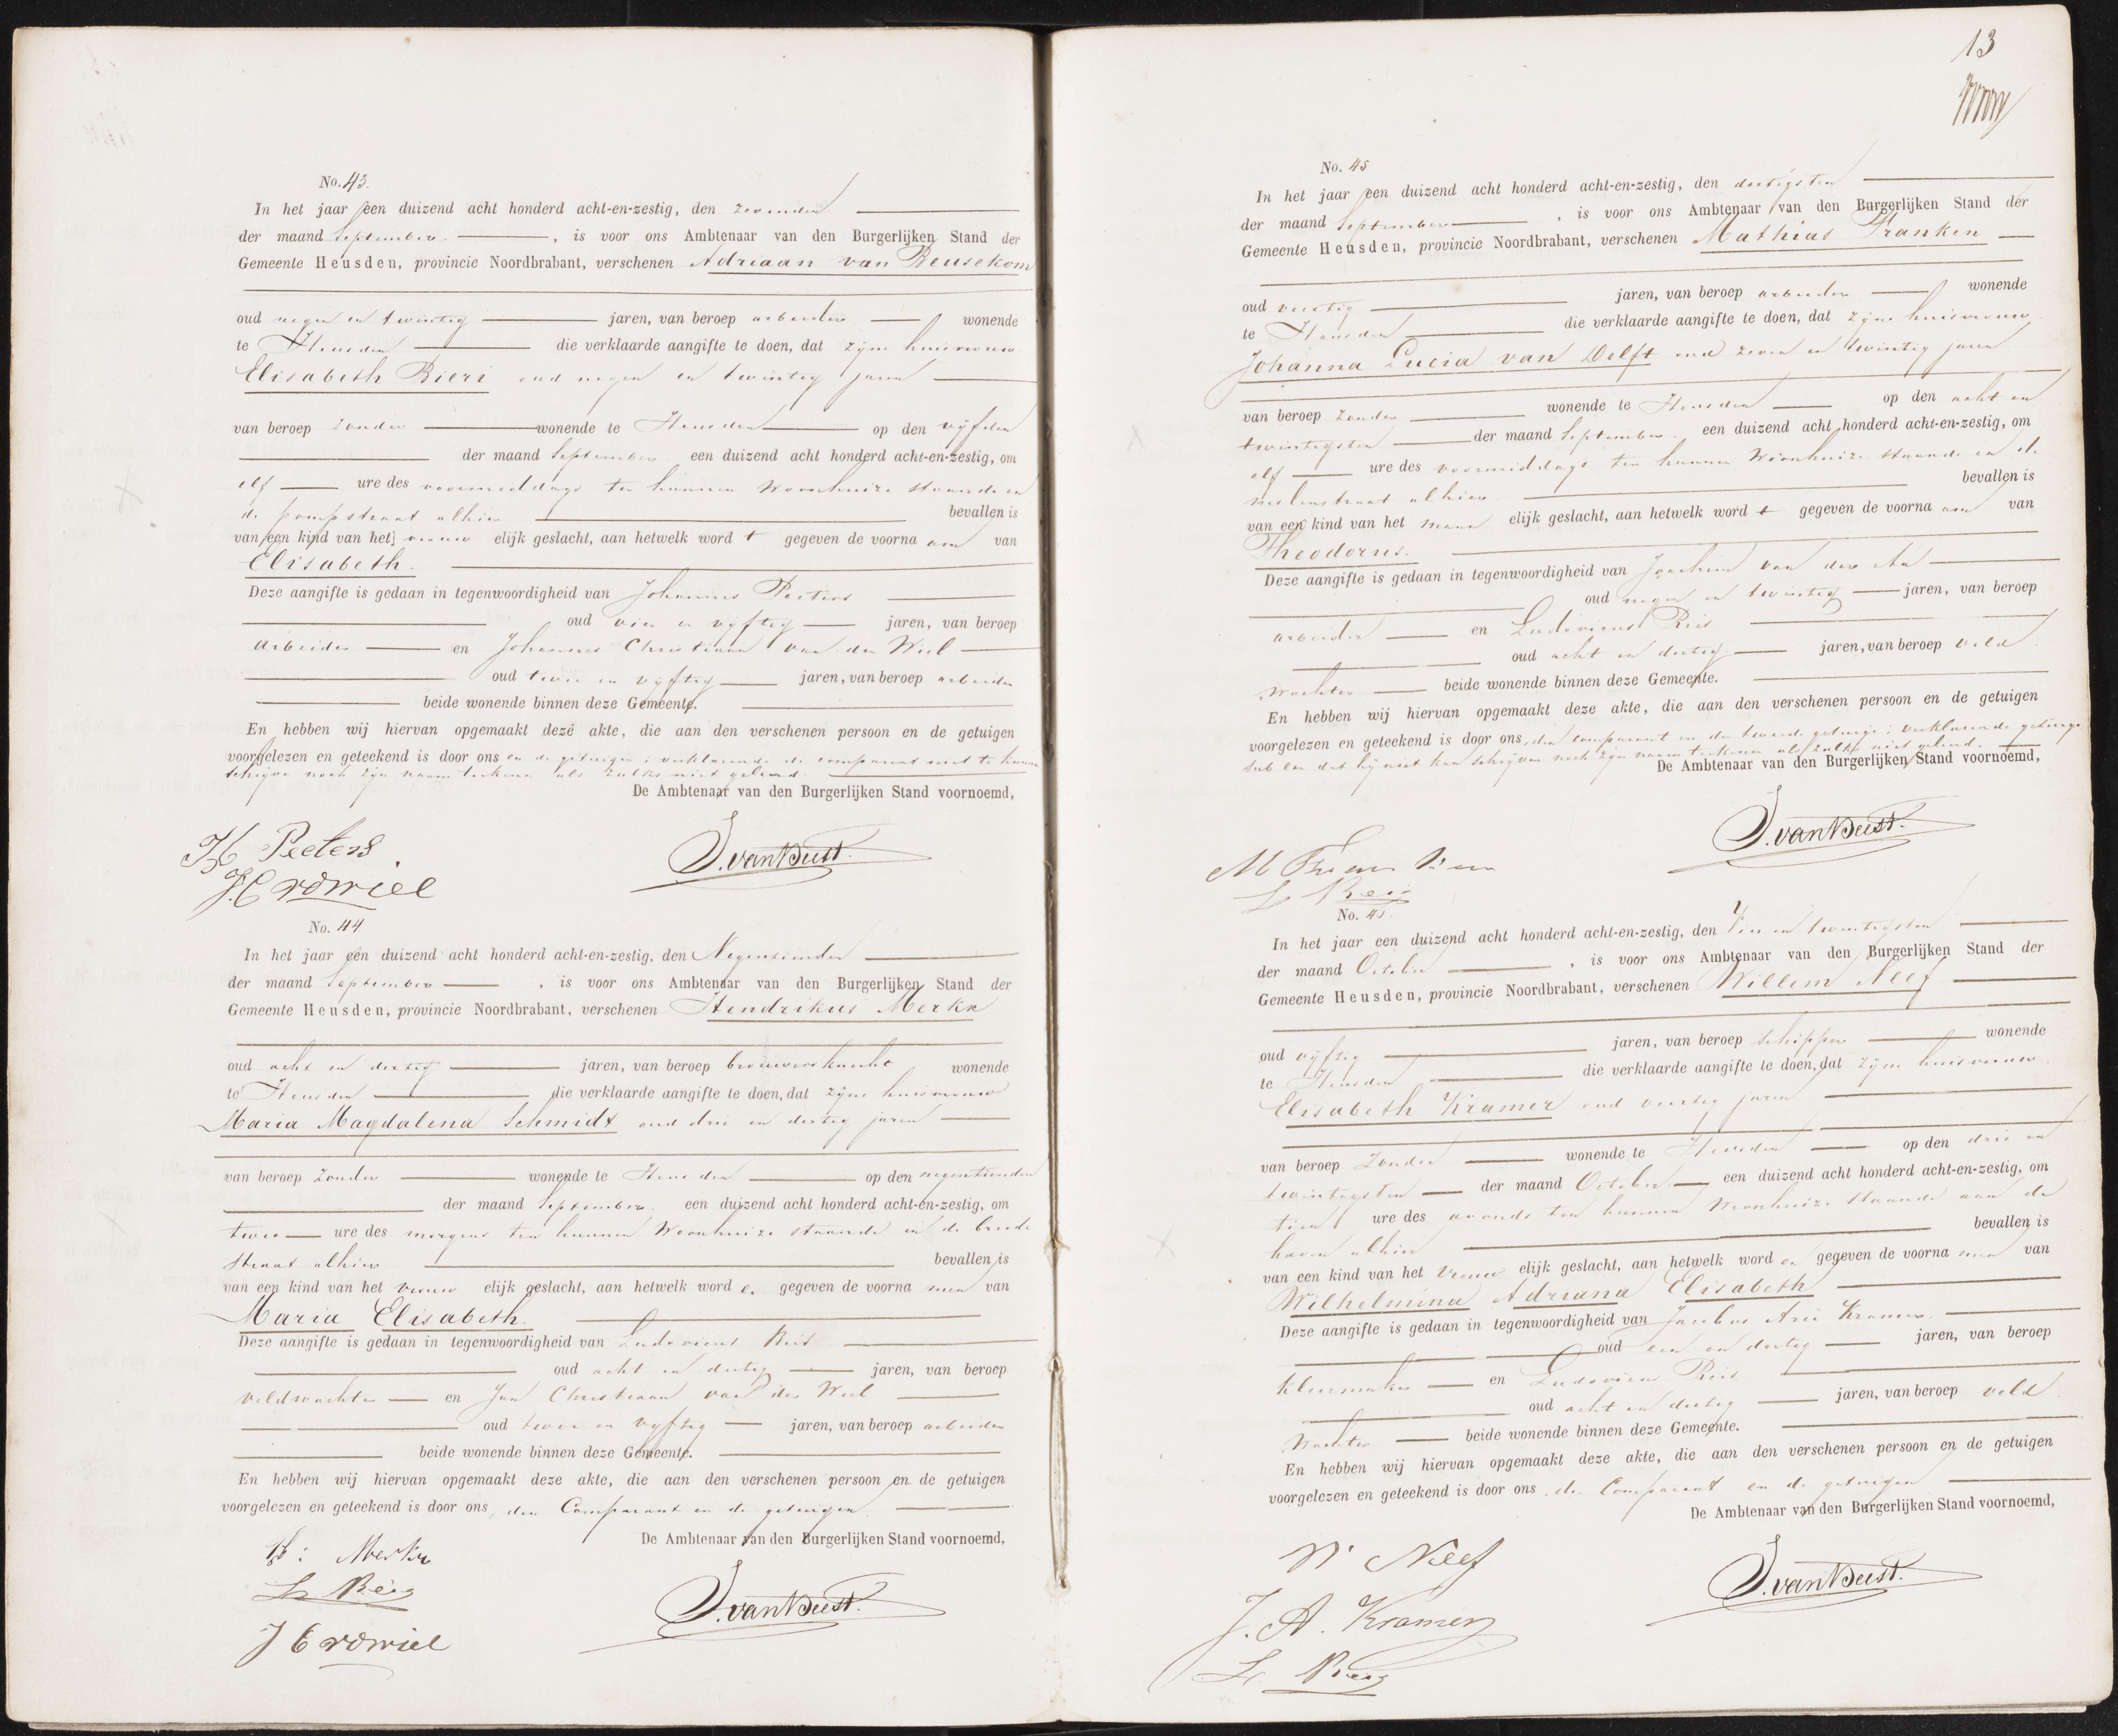 No. 43.
In het jaar een duizend acht honderd acht-en-zestig, den zevenden
der maand September, is voor ons Ambtenaar van den Burgerlijken Stand der
Gemeente Heusden, provincie Noordbrabant, verschenen Adriaan van Beusekom
oud negen en twintig jaren, van beroep arbeider wonende
te Heusden die verklaarde aangifte te doen, dat zijne huisvrouw
Elisabeth Bieri oud negen en twintig jaren
van beroep zonder wonende te Heusden op den vijfden
der maand September een duizend acht honderd acht-en-zestig, om
elf ure des voormiddags ten hunnen Woonhuize staande in
de pompstraat alhier bevallen is
van een kind van het vrouw elijk geslacht, aan hetwelk word t gegeven de voorna am van
Elisabeth.
Deze aangifte is gedaan in tegenwoordigheid van Johannes Peeters
oud vier en vijftig jaren, van beroep
arbeider en Johannes Christiaan van der Wiel
oud twee en vijftig jaren, van beroep arbeider
beide wonende binnen deze Gemeente.
En hebben wij hiervan opgemaakt deze akte, die aan den verschenen persoon en de getuigen
voorgelezen en geteekend is door ons en de getuigen; verklarende de comparant niet te kunnen
schrijven noch zijn naam teekenen als zulks niet geleerd.
De Ambtenaar van den Burgerlijken Stand voornoemd,
Peeters
J. vanBeest.
J C vd wiel
No. 44
In het jaar een duizend acht honderd acht-en-zestig, den Negentienden
der maand September, is voor ons Ambtenaar van den Burgerlijken Stand der
Gemeente Heusden, provincie Noordbrabant, verschenen Hendrikus Merkx
oud acht en dertig jaren, van beroep brouwersknecht wonende
te Heusden die verklaarde aangifte te doen, dat zijne huisvrouw
Maria Magdalena Schmidt oud drie en dertig jaren
van beroep zonder wonende te Heusden op den negentienden
der maand September een duizend acht honderd acht-en-zestig, om
twee ure des morgens ten hunnen Woonhuize staande in de breede
straat alhier bevallen is
van een kind van het vrouw elijk geslacht, aan hetwelk word en gegeven de voorna men van
Maria Elisabeth.
Deze aangifte is gedaan in tegenwoordigheid van Ludovicus Reis
oud acht en dertig jaren, van beroep
veldwachter en Jan Christiaan van der Wiel
oud twee en vijftig jaren, van beroep arbeider
beide wonende binnen deze Gemeente.
En hebben wij hiervan opgemaakt deze akte, die aan den verschenen persoon en de getuigen
voorgelezen en geteekend is door ons, den Comparant en de getuigen.
De Ambtenaar van den Burgerlijken Stand voornoemd,
H: Merkx
L Reis
J. vanBeest.
J C vd wiel
13
No. 45
In het jaar een duizend acht honderd acht-en-zestig, den dertigsten
der maand September, is voor ons Ambtenaar van den Burgerlijken Stand der
Gemeente Heusden, provincie Noordbrabant, verschenen Mathias Franken
oud veertig jaren, van beroep arbeider wonende
te Heusden die verklaarde aangifte te doen, dat zijne huisvrouw
Johanna Lucia van Delft oud zeven en twintig jaren
van beroep zonder wonende te Heusden op den acht en
twintigsten der maand September een duizend acht honderd acht-en-zestig, om
elf ure des voormiddags ten hunnen Woonhuize staande in de
molenstraat alhier bevallen is
van een kind van het mann elijk geslacht, aan hetwelk word t gegeven de voorna am van
Theodorus.
Deze aangifte is gedaan in tegenwoordigheid van Joachim van der Aa
oud negen en twintig jaren, van beroep
arbeider en Ludovicus Reis
oud acht en dertig jaren, van beroep veld
wachter beide wonende binnen deze Gemeente.
En hebben wij hiervan opgemaakt deze akte, die aan den verschenen persoon en de getuigen
voorgelezen en geteekend is door ons, den comparant en den tweede getuige; verklarende getuige
sub een dat hij niet kan schrijven noch zijn naam teekenen als zulks niet geleerd.
De Ambtenaar van den Burgerlijken Stand voornoemd,
J. vanBeest.
M Franken
L Reis
No. 45.
In het jaar een duizend acht honderd acht-en-zestig, den Vier en twintigsten
der maand October, is voor ons Ambtenaar van den Burgerlijken Stand der
Gemeente Heusden, provincie Noordbrabant, verschenen Willem Neef
oud vijftig jaren, van beroep schipper wonende
te Heusden die verklaarde aangifte te doen, dat zijne huisvrouw
Elisabeth Kramer oud veertig jaren
van beroep Zonder wonende te Heusden op den drie en
twintigsten der maand October een duizend acht honderd acht-en-zestig, om
tien ure des avonds ten hunnen Woonhuize staande aan de
haven alhier bevallen is
van een kind van het vrouw elijk geslacht, aan hetwelk word en gegeven de voorna men van
Wilhelmina Adriana Elisabeth
Deze aangifte is gedaan in tegenwoordigheid van Jacobus Arie Kramer
oud een en dertig jaren, van beroep
kleermaker en Ludovicus Reis
oud acht en dertig jaren, van beroep veld
wachter beide wonende binnen deze Gemeente.
En hebben wij hiervan opgemaakt deze akte, die aan den verschenen persoon en de getuigen
voorgelezen en geteekend is door ons, den Comparant en de getuigen
De Ambtenaar van den Burgerlijken Stand voornoemd,
W. Neef
J. vanBeest.
J. A. Kramer
L Reis